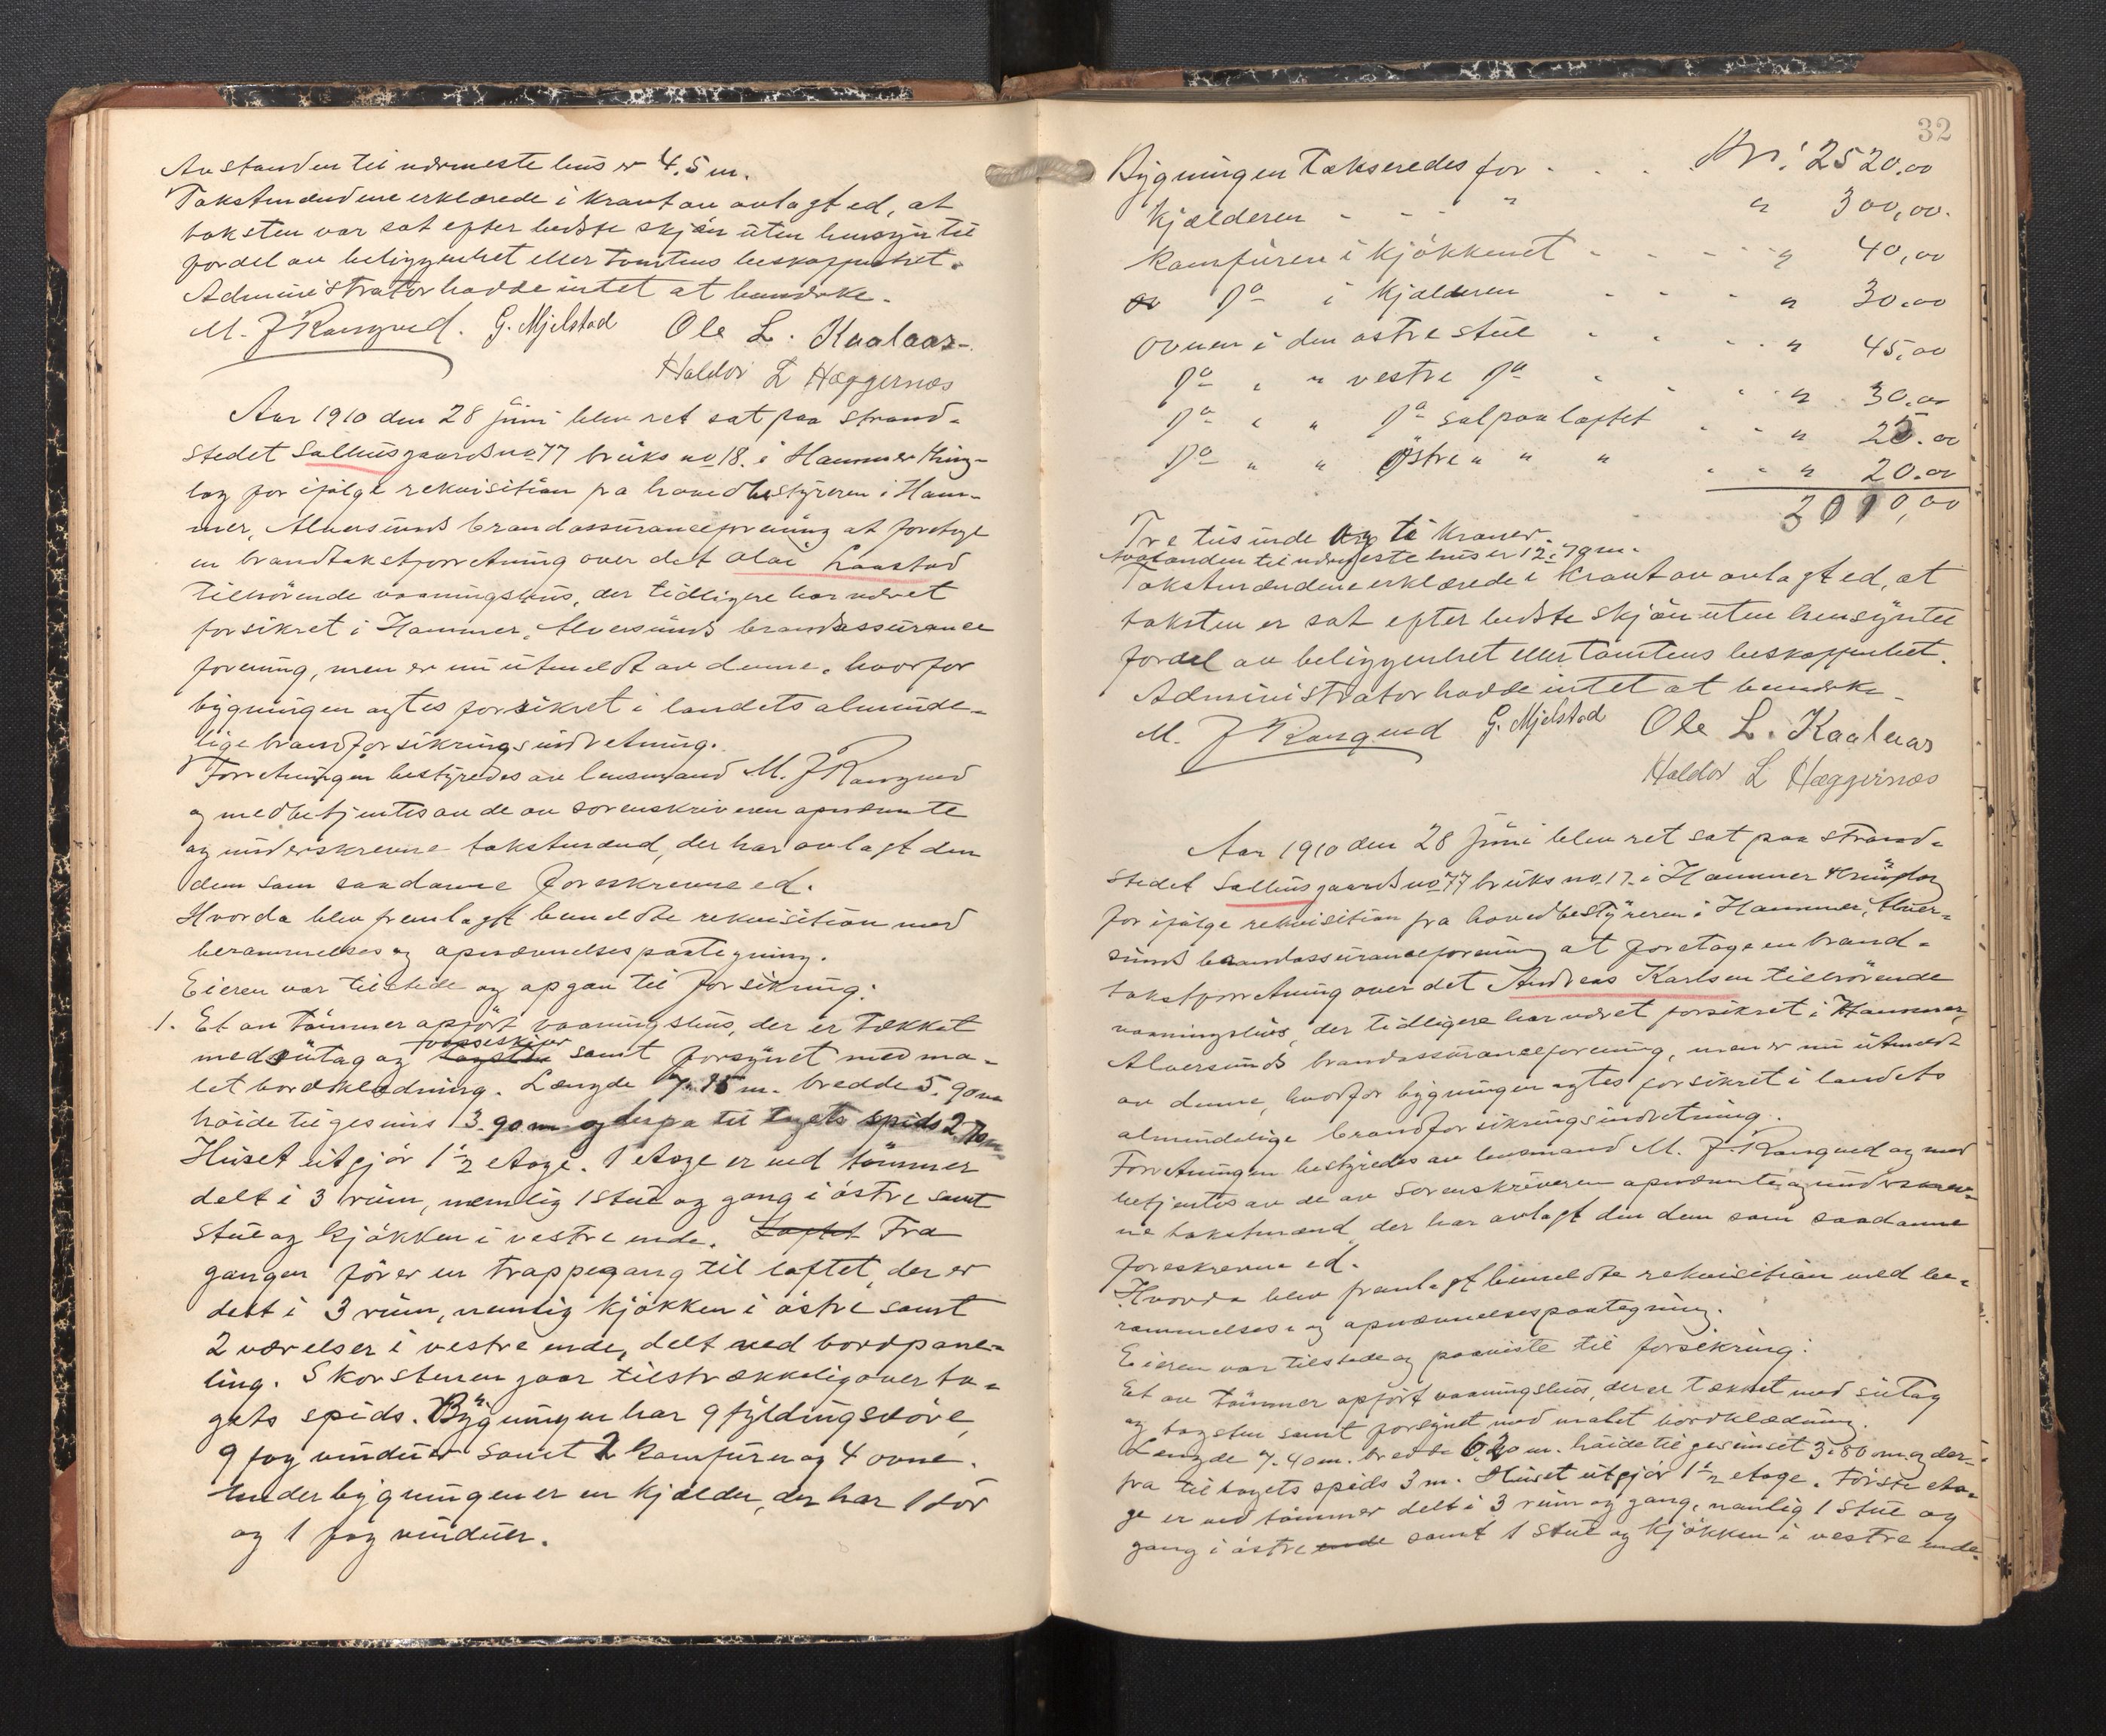 Avstanden til nærmeste hus er 4,5 m.
Takstmændene erklærede i kraft av avlagt ed, at
taksten var sat efter bedste skjøn uten hensyn til
fordel av beliggenhet eller tomtens beskaffenhet.
Administrator hadde intet at bemærke.
M. J Kongsved. G. Mjelstad Ole L. Kaalaas
Haldor L Hæggernæs
Aar 1910 den 28 juni blev ret sat paa strand-
stedet Salhus gaards no 77 bruks no 18. i Hammer thing-
lag for ifølge rekvisition fra hovedbestyreren i Ham-
mer, Alversunds brandassuranceforening at foretage
en brandtakstforretning over det Olai Laastad
tilhörende vaaningshus, der tidligere har været
forsikret i Hammer, Alversunds brandassurance
forening, men er nu utmeldt av denne, hvorfor
bygningen agtes forsikret i landets alminde-
lige brandforsikringsindretning.
Forretningen bestyredes av lensmand M. J
og medbetjentes av de av sorenskriveren opnævnte
og underskrevne takstmænd, der har avlagt den
dem som saadanne foreskrevne ed.
Hvorda blev fremlagt bemeldte rekvisition med
berammelses og opnævnelsespaategning.
Eieren var tilstede og opgav til forsikring:
1. Et av tömmer opfört vaaningshus, der er tækket
med sutag og tagsten samt forsynet med ma-
let bordklædning. Længde 7.15 m. bredde 5.90 m
höide til gesims 3.90 m og derfra til tagets spids 2.70 m.
Huset utgjör 1 1/2 etage. 1 etage er ved tömmer
delt i 3 rum, nemlig 1 stue og gang i östre samt
stue og kjökken i vestre ende. Loftet Fra
gangen förer en trappegang til loftet, der er
delt i 3 rum, nemlig kjökken i östre samt
2 værelser i vestre ende, delt ved bordpane-
ling. Skorstenen gaar tilstrækkelig over ta-
gets spids. Bygningen har 9 fyldingsdöre,
9 fag vinduer samt 2 komfurer og 4 ovne.
Under bygningen er en kjælder, der har 1 dör
og 1 fag vinduer.
32
Bygningen takseredes for - - - Kr. 2520.00
Kjælderen - - - " " 300,00.
Komfuren i kjökkenet - - - - " 40,00
Do i kjælderen - - - - " 30.00
Ovnen i den östre stue - - - - " 45,00
Do " " vestre Do - - - " 30.00
Do " " Do sal paa loftet - - " 25.00
Do " " Östre " " " - - " 20.00
3010,00
Tre tusinde og ti kroner.
Avstanden til nærmeste hus er 12,70 m.
Takstmændene erklærede i kraft av avlagt ed, at
taksten er sat efter bedste skjön uten hensyn til
fordel av beliggenhet eller tomtens beskaffenhet.
Administrator hadde intet at bemærke.
M. J G. Mjelstad Ole L. Kaalaas
Haldor L Hæggernæs
Aar 1910 den 28 juni blev ret sat paa strand-
stedet Salhus gaards no 77 bruks no. 17 i Hammer thinglag
for ifölge rekvisition fra hovedbestyreren i Hammer, Alver-
sunds brandassuranceforening at foretage en brand-
takstforretning over det Andreas Karlsen tilhörende
vaaningshus, der tidligere har været forsikret i Hammer,
Alversunds brandassuranceforening, men er nu utmeldt
av denne, hvorfor bygningen agtes forsikret i landets
almindelige brandforsikringsindretning.
Forretningen bestyredes av lensmand M. J. og med
betjentes av de av sorenskriveren opnævnte og underskrev-
ne takstmænd, der har avlagt den dem som saadanne
foreskrevne ed.
Hvorda blev fremlagt bemeldte rekvisition med be-
rammelses- og opnævnelsespaategning.
Eieren var tilstede og paaviste til forsikring:
Et av tömmer opfört vaaningshus, der er tækket med sutag
og tagsten samt forsynet med malet bordklædning.
Længde 7.40 m. bredde 6.20 m. höide til gesimset 3.80 m og der-
fra til tagets spids 3 m. Huset utgjör 1 1/2 etage. Förste eta-
ge er ved tömmer delt i 3 rum og gang, nemlig 1 stue og
gang i östre ende samt 1 stue og kjökken i vestre ende.